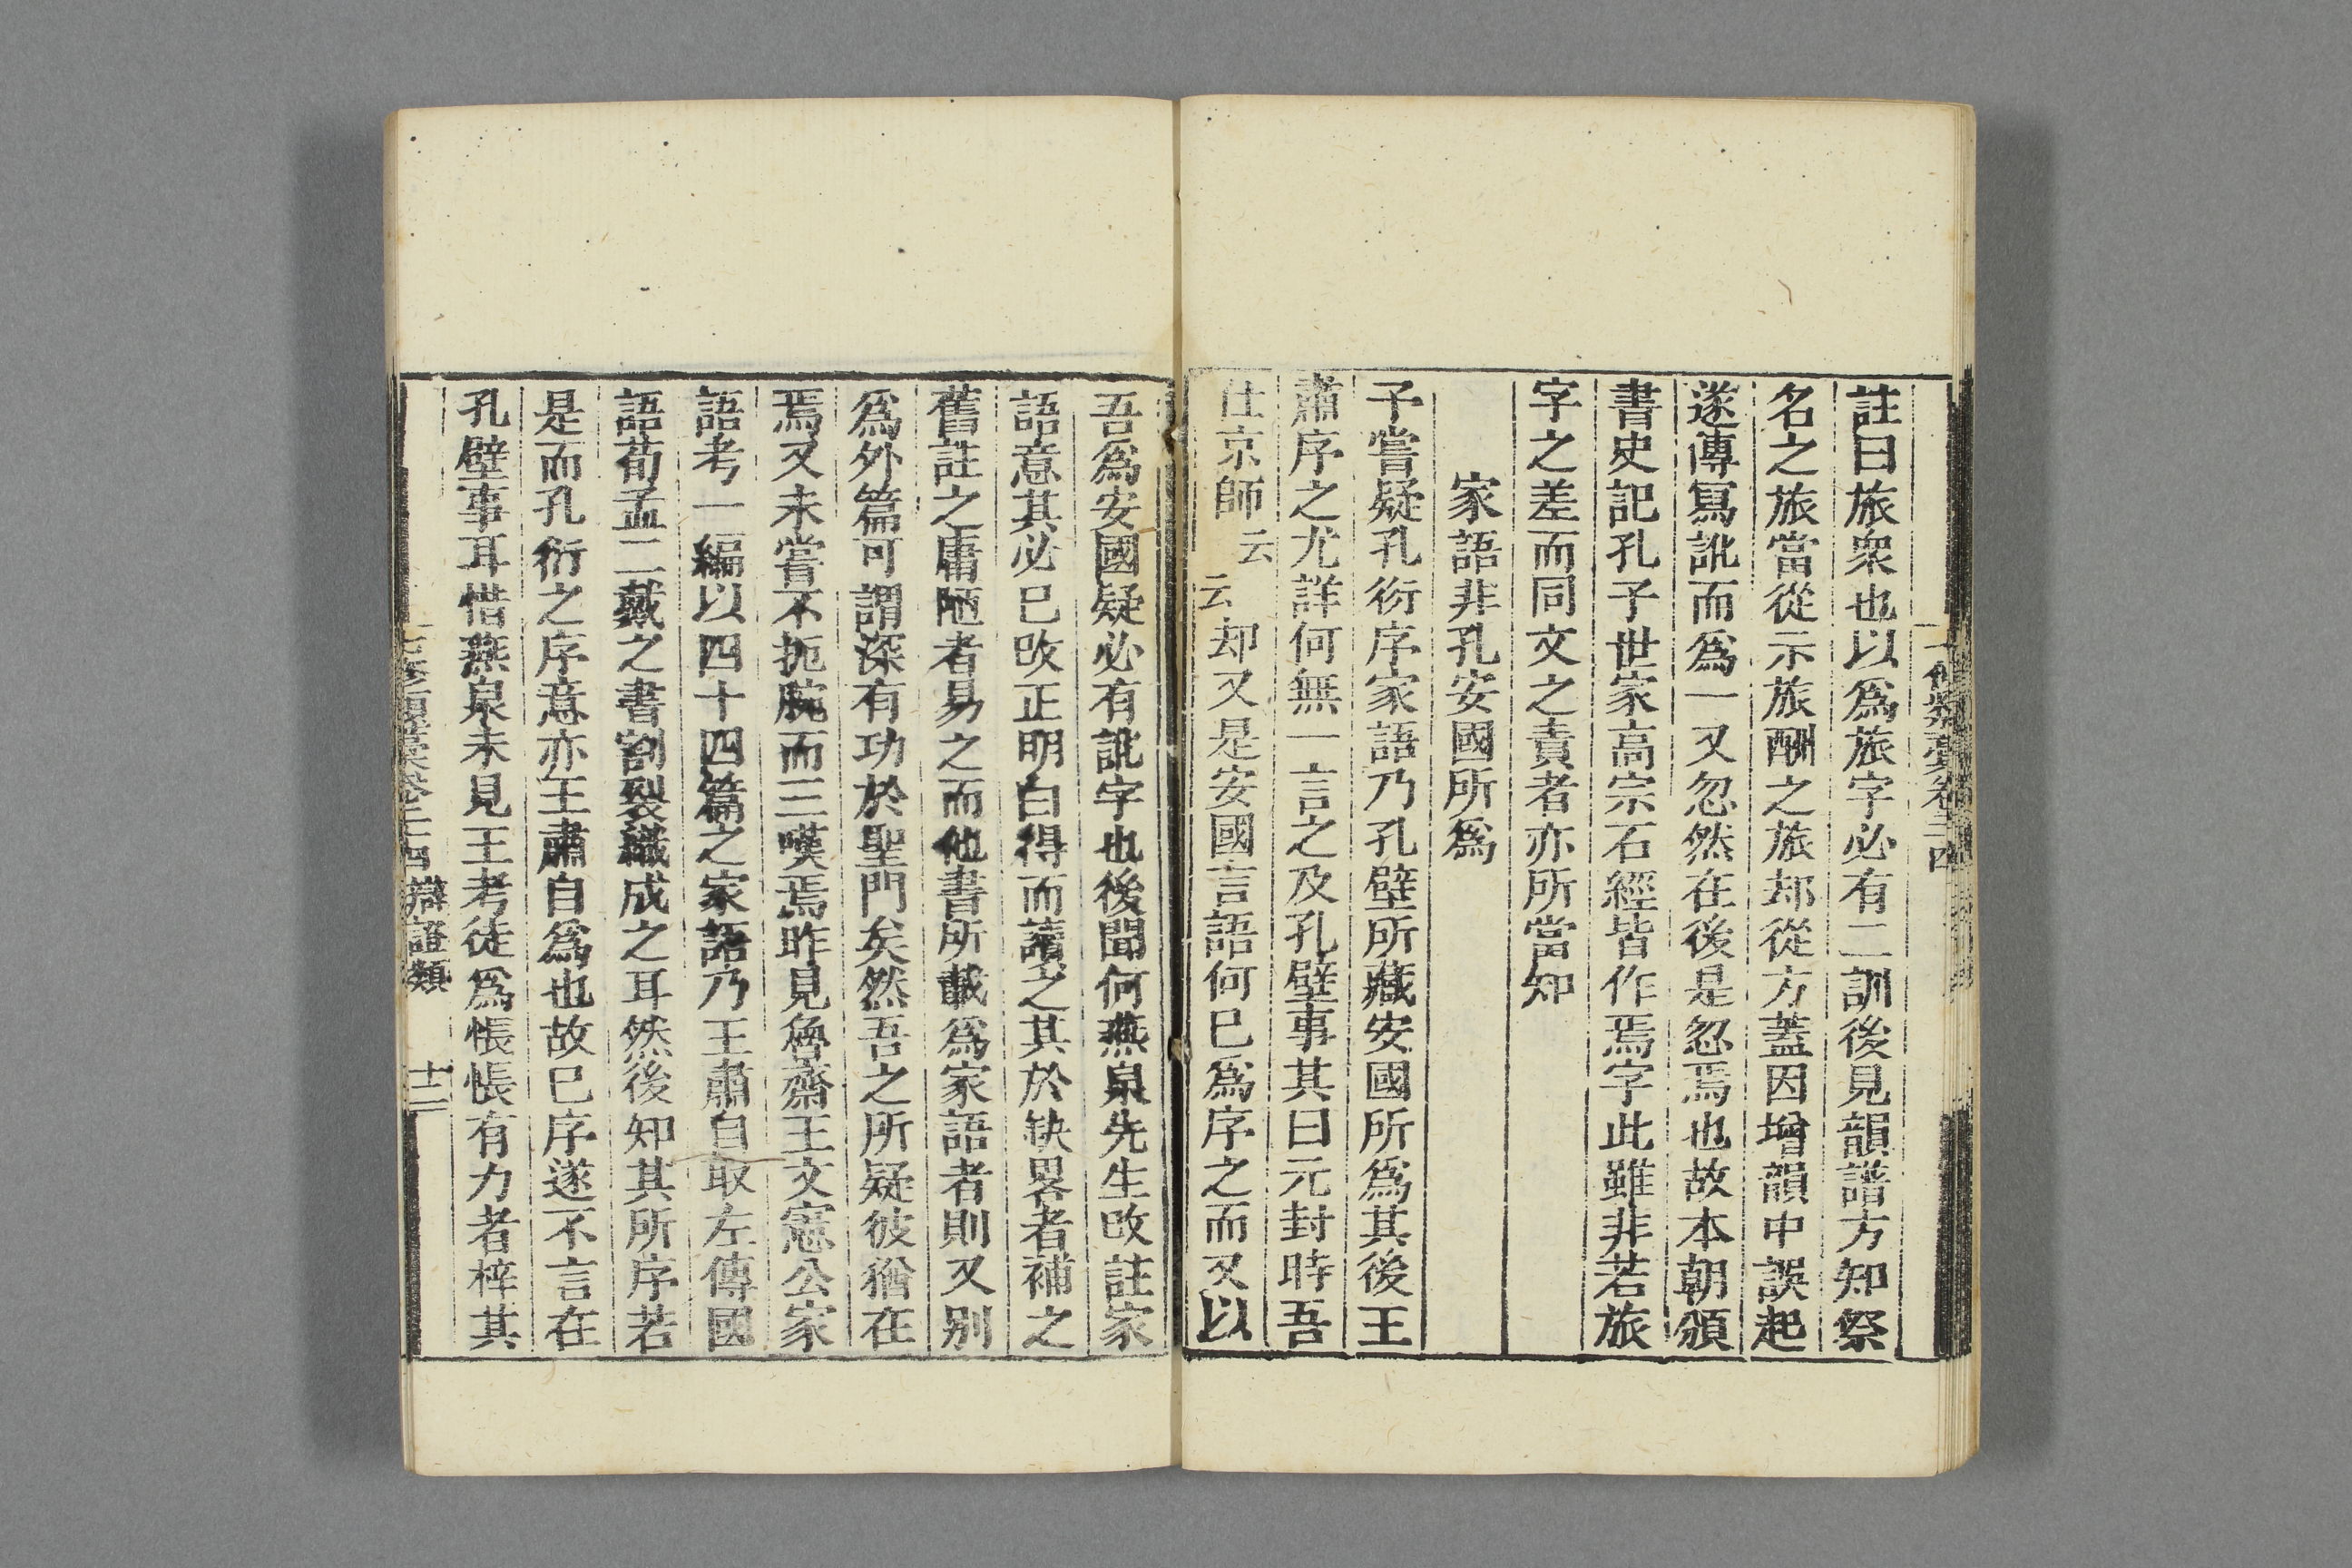 註曰旅衆也以爲旅字必有二訓後見韻譜方知祭
名之旅當從示旅酬之旅却從方蓋因增韻中誤起
遂傳冩訛而爲一又忽然在後是忽焉也故本朝頒
書史記孔子世家高宗石經皆作焉字此雖非若旅
字之差而同文之責者亦所當知
家語非孔安國所爲
予嘗疑孔衍序家語乃孔壁所藏安國所爲其後王
肅序之尤詳何無一言之及孔壁事其曰元封時吾
仕京師云云却又是安國言語何巳爲序之而又以
吾爲安國疑必有訛字也後聞何燕泉先生改註家
語意其必巳改正明白得而讀之其於缺畧者補之
舊註之庸陋者易之而他書所載爲家語者則又别
爲外篇可謂深有功於聖門矣然吾之所疑彼猶在
焉又未嘗不扼腕而三嘆焉昨見魯齋王文憲公家
語考一編以四十四篇之家語乃王肅自取左傳國
語荀孟二戴之書割裂織成之耳然後知其所序若
是而孔衍之序意亦王肅自爲也故巳序遂不言在
孔壁事耳惜燕泉未見王考徒爲悵悵有力者梓其
七修類藁卷二十四 辯證類 十二